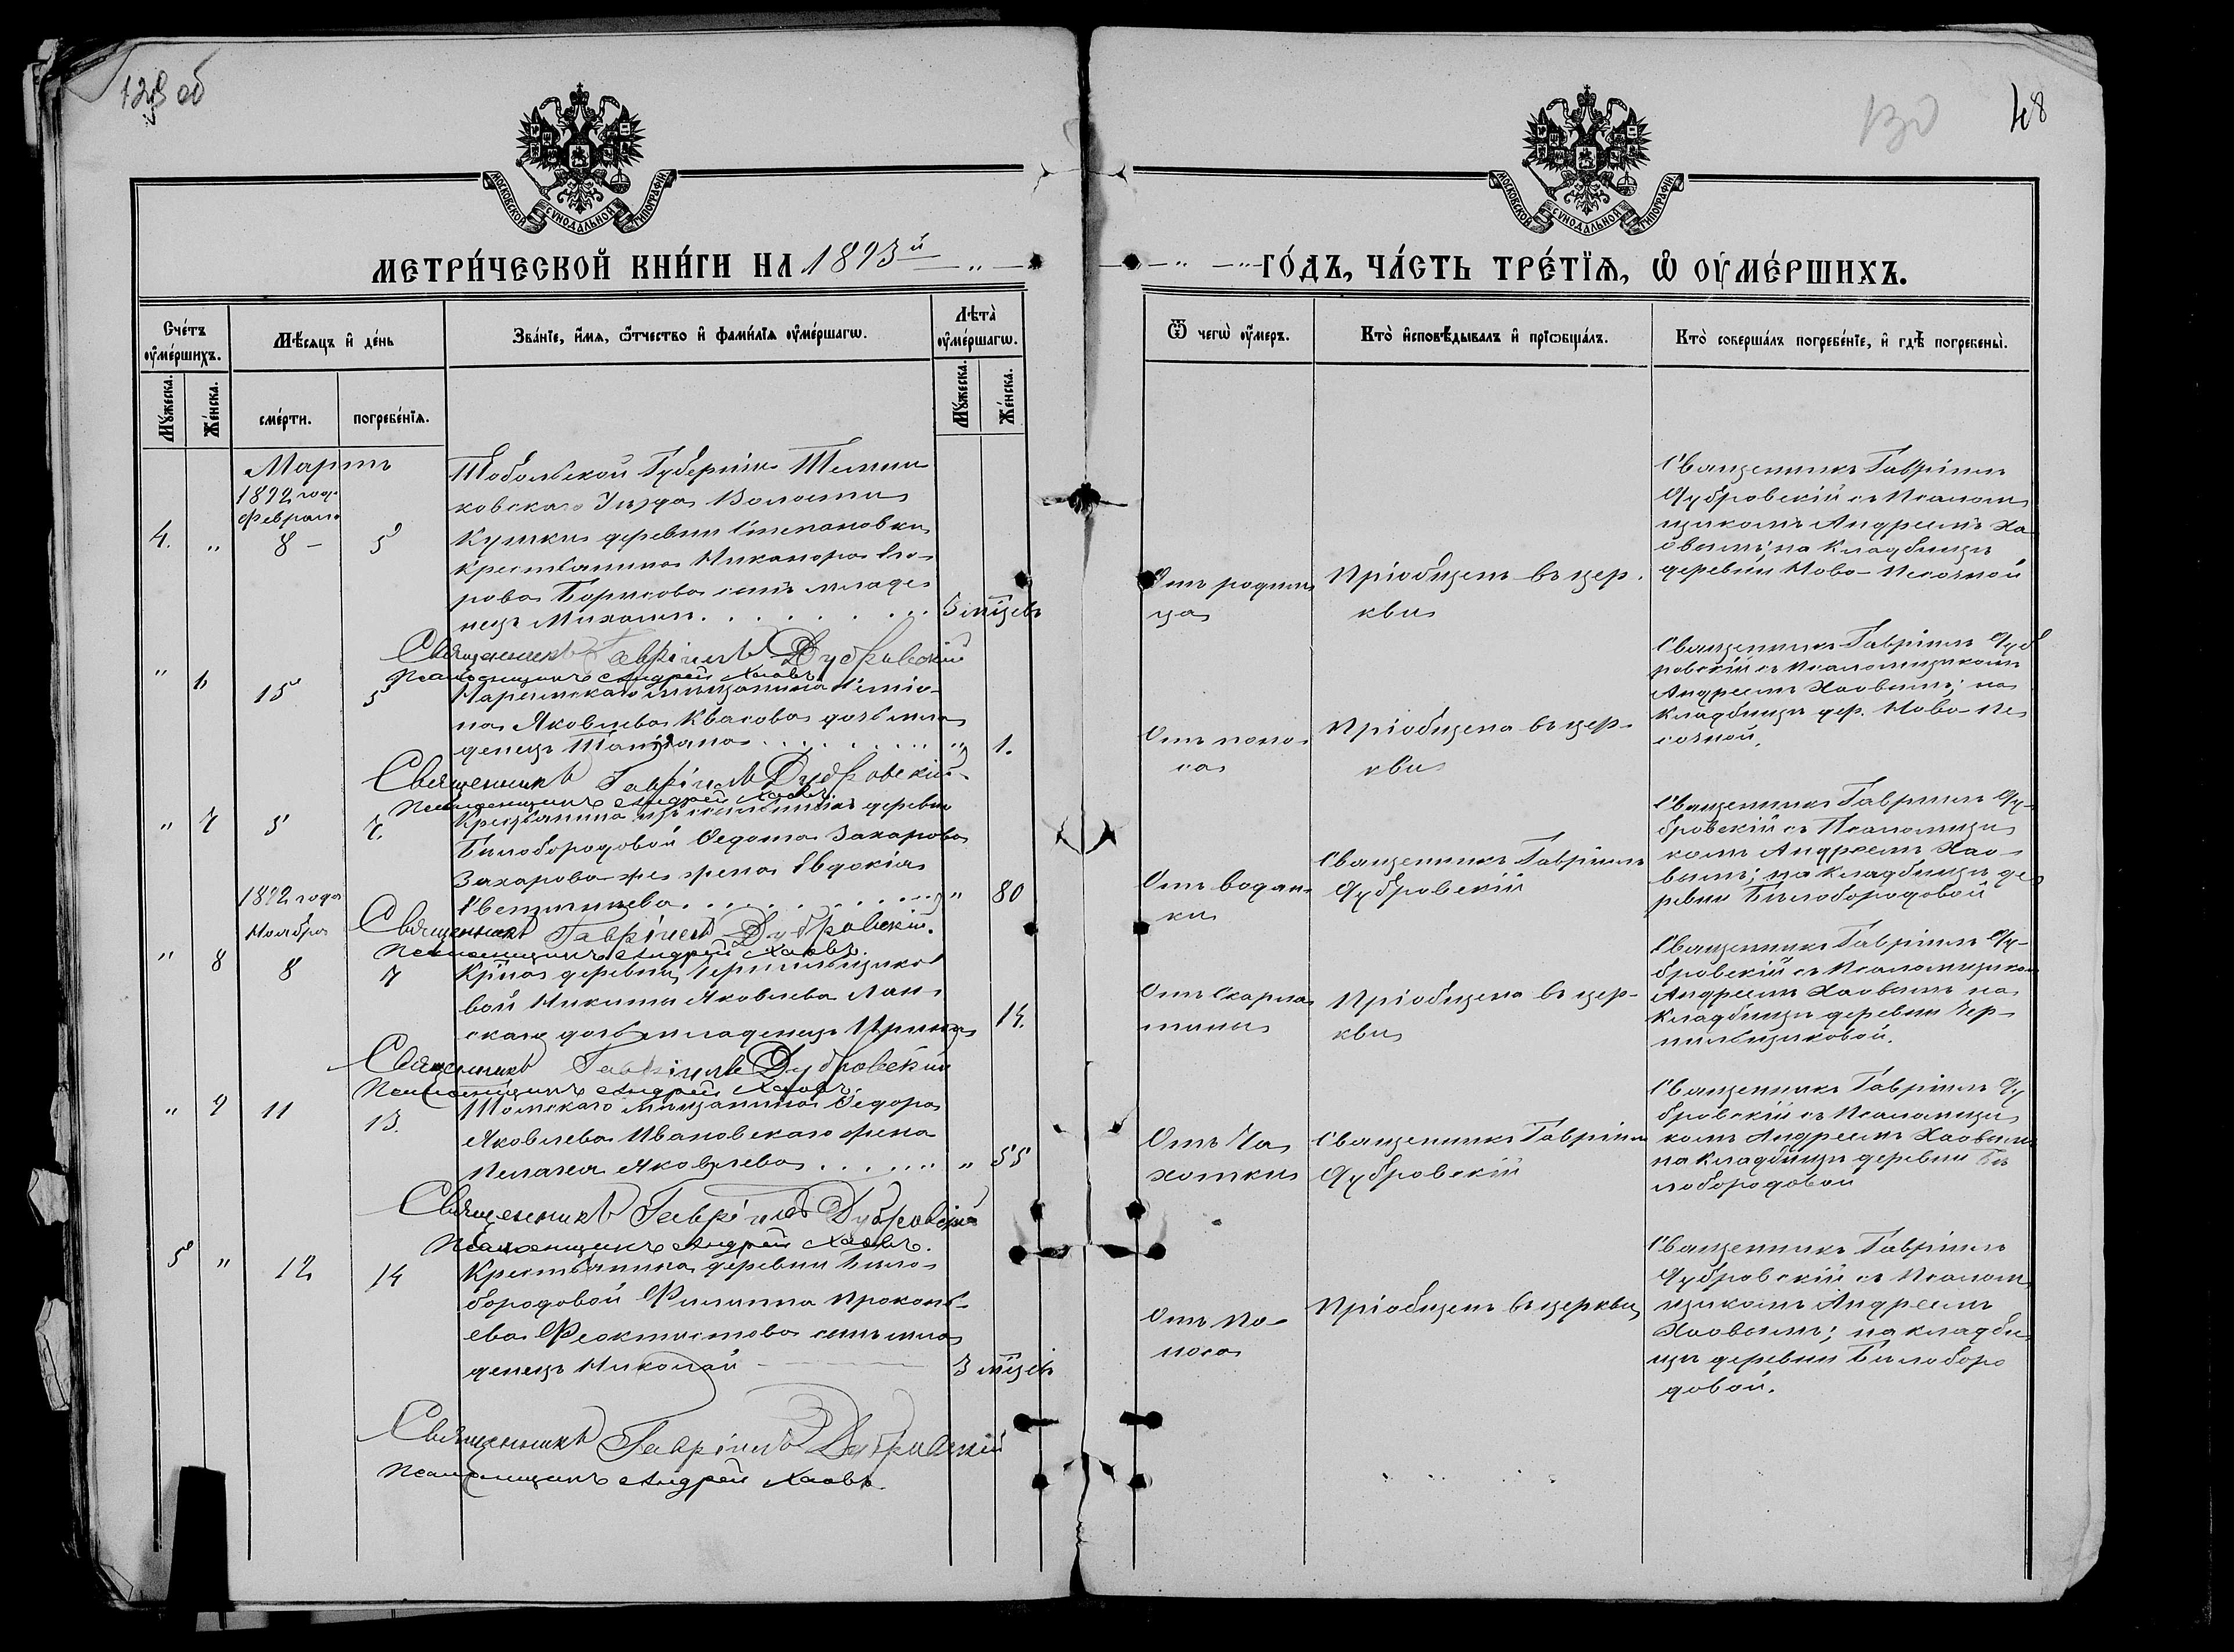 129 об
130
48
МОСКОВСКОЙ СѴНОДАЛЬНОЙ ТИПОГРАФІИ
МОСКОВСКОЙ СѴНОДАЛЬНОЙ ТИПОГРАФІИ
МЕТРИ́ЧЕСКОЙ КНИ́ГИ НА 1893й
ГО́ДЪ, ЧА́СТЬ ТРЕ́ТІѦ, Ѡ ОУМЕ́РШИХЪ.
Сче́тъ оу҆ме́ршихъ.
Мꙋ́жеска.
Же́нска.
Мѣ́сяцъ и҆ де́нь
сме́рти.
погребе́нїѧ.
Зва́нїе, и҆́мѧ, ѻ҆́тчество и҆ фами́лїѧ оу҆ме́ршагѡ.
Лѣ́та оу҆ме́ршагѡ.
Мꙋ́жеска.
Же́нска.
Ѿ чегѡ̀ оу҆́меръ.
Кто̀ и҆сповѣ́дывалъ и҆ прїѡбща́лъ.
Кто̀ соверша́лъ погребе́нїе, и҆ гдѣ̀ погребены̀.
Мартъ
1892 год
Февраля
4. " 8 – 5
Тобольской Губерніи
ковскаго Уѣзда Волости
деревни Степановки
крестьянина Никанора
рова Борисова сынъ младе
нецъ Михаилъ. . . . . . . .
3 мцевъ
Отъ родим
ца
Пріобщенъ въ цер.
кви
Священникъ Гавріилъ
Дубровскій съ Псалом
щикомъ Андреемъ Ха
овымъ; на кладбищѣ
деревни Ново-Песочной
Священникъ Гавріилъ Дубровскій
Псаломщикъ Андрей Хаовъ
" 6 15 5
Нарымскаго мѣщанина
на Яковлева Квасова дочь мла
денецъ Татіана. . . . . . . "
1.
Отъ поно
са
Пріобщена въ цер-
кви
Священникъ Гавріилъ Дуб
ровскій съ Псаломщикомъ
Андреемъ Хаовымъ; на
кладбищѣ дер. Ново-Пе
сочной.
Священникъ Гавріилъ Дубровскій
Псаломщикъ Андрей Хаовъ
" 7 5 7.
Крестьянина изъ деревни
Бѣлобородовой Ѳедота Захарова
Захарова-же жена Евдокія
. . . . . . . . "
80
Отъ водян
ки
Священникъ Гавріилъ
Дубровскій
Священникъ Гавріилъ Ду-
бровскій съ Псаломщи
комъ Андреемъ Хао-
вымъ; на кладбищѣ де
ревни Бѣлобородовой
1892 года
Ноября
Священникъ Гавріилъ Дубровскій.
Псаломщикъ Андрей Хаовъ.
" 8 8 7
Крїна деревни Чернильщико
вой Никиты Яковлева Лан
скаго дочь младенецъ Ирина
14.
Отъ Скарла
тины
Пріобщена въ цер-
кви
Священникъ Гавріилъ Ду-
бровскій съ Псаломщиком
Андреемъ Хаовымъ на
кладбищѣ деревни Чер-
нильщиковой.
Священникъ Гавріилъ Дубровскій
Псаломщикъ Андрей Хаовъ.
" 9 11 13.
Томскаго мѣщанина Ѳедора
Яковлева Ивановскаго жена
Пелагея Яковлева . . . . . . "
55
Отъ Ча
хотки
Священникъ Гавріилъ
Дубровскій
Священникъ Гавріилъ Ду
бровскій съ Псаломщи
комъ Андреемъ Хаовымъ
на кладбищѣ деревни Бѣ
лобородовой
Священникъ Гавріилъ Дубровскій
Псаломщикъ Андрей Хаовъ.
5 " 12 14
Крестьянина деревни Бѣло-
бородовой Филиппа Прокопь-
ева Феоктистова сынъ мла
денецъ Николай
3 мцевъ
Отъ По-
носа
Пріобщенъ въ церкви
Священникъ Гавріилъ
Дубровскій съ Псалом
щикомъ Андреемъ
Хаовымъ; на кладби
щѣ деревни Бѣлоборо
довой.
Священникъ Гавріилъ Дубровскій
Псаломщикъ Андрей Хаовъ.